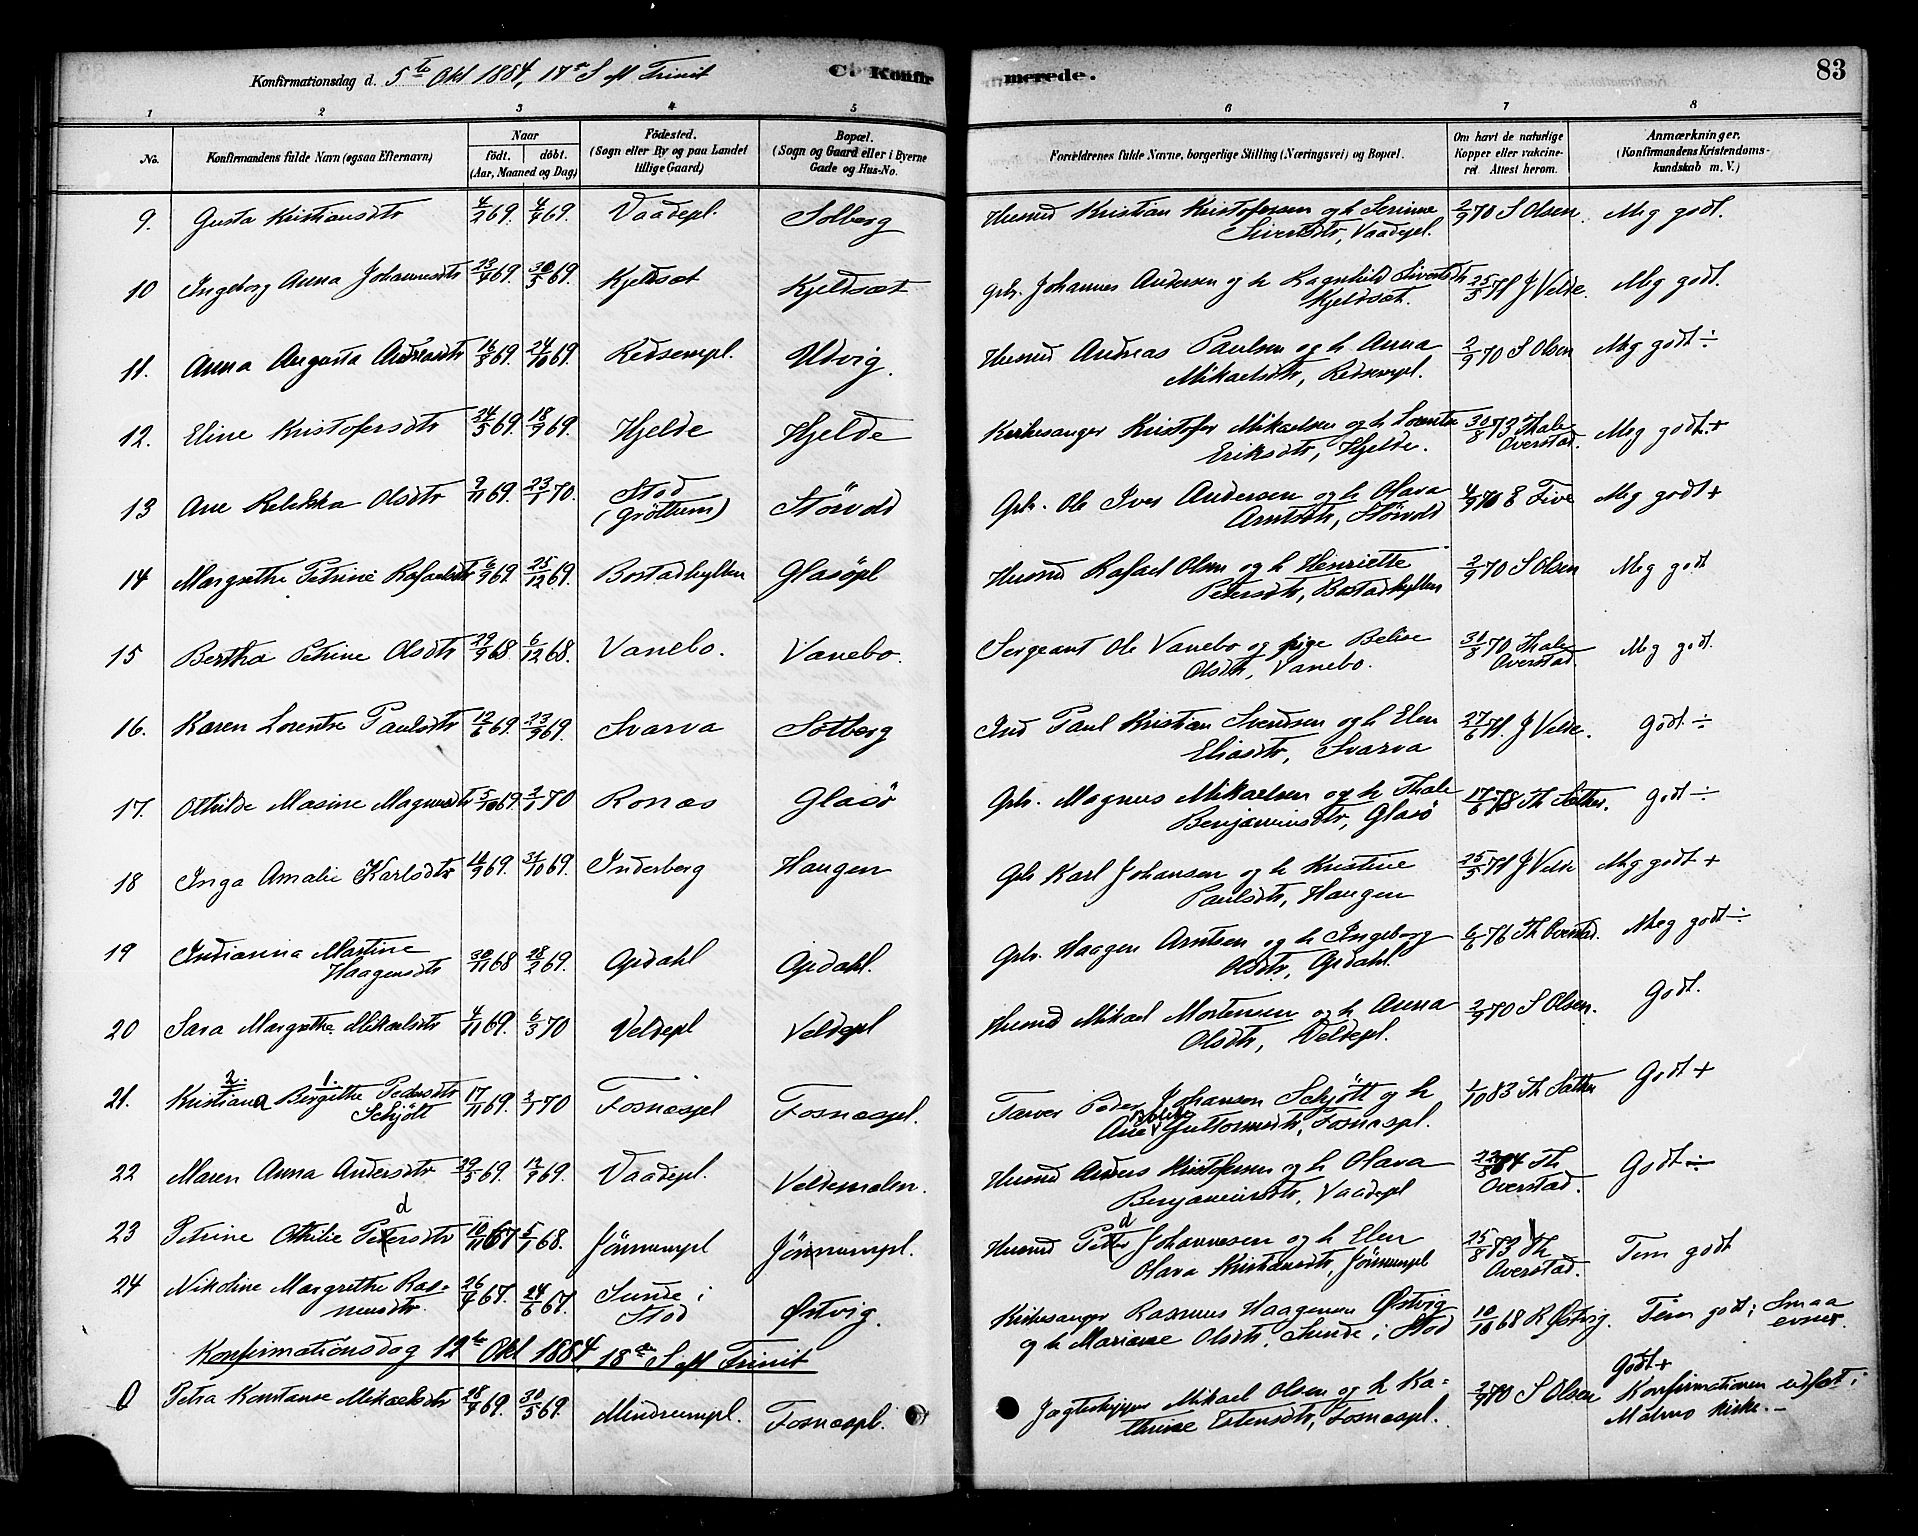 Konfirmationsdag d. 5te Okt 1884, 17de S. eft Trinit C. Konfirmerede. 83
1 2 3 4 5 6 7 8
No. Konfirmandens fulde Navn (ogsaa Efternavn) Naar födt. döbt. (Aar, Maaned og Dag) Födested. (Sogn eller By og paa Landet tillige Gaard) Bopæl. (Sogn og Gaard eller i Byerne Gade og Hus-No. Forældrenes fulde Navne, borgerlige Stilling (Næringsvei) og Bopæl. Om havt de naturlige Kopper eller vakcineret. Attest herom. Anmærkninger. (Konfirmandens Kristendomskundskab m. V.)
9. Gusta Kristiansdtr 4/2 69. 4/4 69. Vaadepl. Solberg Husmd Kristian Kristofersen og h Serinne 2/9 70 S Olsen. Meg godt.
Sivertsdtr, Vaadepl.
10 Ingeborg Anna Johannesdtr 23/4 69. 30/5 69. Kjeldsæt Kjeldsæt Gbr. Johannes Andersen og h Ragnhild Sivertsdtr 25/5 71 J Velde. Meg godt.
Kjeldsæt.
11. Anna Augusta Andreasdtr 16/8 69. 24/10 69. Redsempl. Utvig. Husmd Andreas Paulsen og h. Anna 2/9 70 S Olsen Meg godt ÷
Mikaelsdtr, Redsempl.
12. Eline Kristofersdtr 24/5 69. 18/7 69. Hjelde Hjelde Kirkesanger Kristofer Mikaelsen og h Lorentse 30/8 73 Thale Overstad. Meg godt. +
Eriksdtr, Hjelde.
13 Ane Rebekka Olsdtr 9/11 69. 23/1 70. Stod (Gröttum) Störvold Gbr. Ole Iver Andersen og h Olava 4/9 70 E Five Meg godt +
Arntsdtr, Störvold
14 Margrethe Petrine Rafaelsdtr 6/9 69. 25/12 69. Bostadhylden Glasöpl Husmd Rafael Olsen og h Henriette 2/9 70 S Olsen Meg godt
Petersdtr, Bostadhyllen
15 Bertha Petrine Olsdtr 29/9 68. 6/12 68. Vanebo. Vanebo. Sergeant Ole Vanebo og pige Beline 31/8 70 Thale Overstad Meg godt.
Olsdtr, Vanebo.
16. Karen Lorentse Paulsdtr 12/6 69. 23/9 69. Svarva Solberg Ind Paul Kristian Svendsen og h Elen 27/6 71. J Velde. Godt ÷
Eliasdtr, Svarva
17. Othilde Masine Magnusdtr 5/10 69. 2/1 70 Ronæs Glasö Gbr. Magnus Mikaelsen og h Thale 17/6 78 Th Sæther. Godt ÷
Benjaminsdtr, Glasö
18 Inga Amalie Karlsdtr 11/9 69. 31/10 69. Inderberg Haugen Gbr Karl Johansen og h Kristine 25/5 71 J Velde Meg godt +
Paulsdtr, Haugen
19 Indianna Martine Haagensdtr 30/11 68 28/2 69. Opdahl Opdahl. Gbr. Haagen Arntsen og h Ingeborg 6/6 76 Th Overstad. Meg godt ÷
Olsdtr, Opdahl.
20 Sara Margrethe Mikaelsdtr 4/11 69. 6/3 70 Veldepl Veldepl Husmd Mikael Mortensen og h Anna 2/9 70 S Olsen. Godt.
Olsdtr, Veldepl.
2. 1.
21. Kristiana Birgithe Pedersdtr Schjött 17/11 69. 2/1 70 Fosnæspl Fosnæspl. Farver Peder Johansen Schjött og h 1/10 83 Th Sæther Godt +
Ane Guttormsdtr, Fosnæspl.
22 Maren Anna Andersdtr 29/5 69. 12/9 69. Vaadepl. Veldemalen. Husmd Anders Kristofersen og h Olava 22/8 84 Th Overstad. Godt ÷
Benjaminsdtr, Vaadepl
d d
23 Petrine Othilie Petersdtr 10/11 67 5/1 68. Jönnumpl Jönnumpl. Husmd Petter Johannesen og h Elen 25/8 73 Th Overstad. Tem godt
Olava Kristiansdtr, Jönnumpl
24 Nikoline Margrethe Rasmusdtr. 26/4 67. 24/6 67. Sunde i Stod Østvig. Kirkesanger Rasmus Haagensen Østvig 10/10 68 R Østvig. Tem godt; Smaa evner.
og h Marianne Olsdtr. Sunde i Stod
Konfirmationsdag 12te Okt 1884, 18de S. eft Trinit
0 Petra Konstanse Mikaelsdtr 28/4 69. 30/5 69. Mindrumpl. Fosnæspl. Jægteskipper Mikael Olsen og h Ka- 2/9 70 S Olsen Godt + Konfirmationen udfört i
thrine Estensdtr, Fosnæspl. Malmo kirke. -